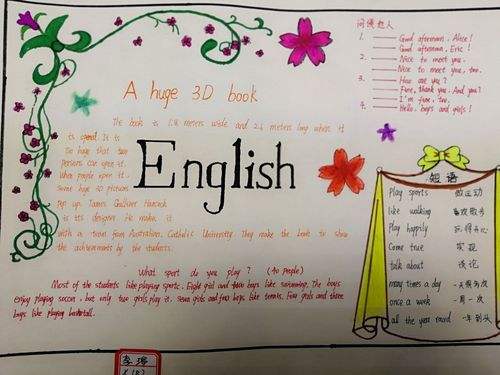 问候他人
1. Good afternoon, Alice!
Good afternoon, Eric!
2. Nice to meet you.
Nice to meet you, too.
3. How are you?
Fine, thank you. And you?
4. I'm fine, too.
Hello, boys and girls!
A huge 3D book
The book is 1.8 meters wide and 2.6 meters long when it
is opend. It is
so huge that two
persons can open it.
When people open it.
Some huge 3D pictures
Pop up. James Gulliver Hancock
is its designer. He makes it
with a team from Australian Catholic University. They make the book to show
the achievements by the students.
English
What sport do you play? (40 people)
Most of the students like playing sports. Eight girl and two boys like swimming. The boys
enjoy playing soccer, but only two girls play it. Seven girls and four boys like tennis. Five girls and three
boys like playing basketball.
短语
Play sports 做运动
like walking 喜欢散步
Play happily 玩得开心
Come true 实现
talk about 谈论
many times a day 一天很多次
once a week 一周一次
all the year round 一年到头
李